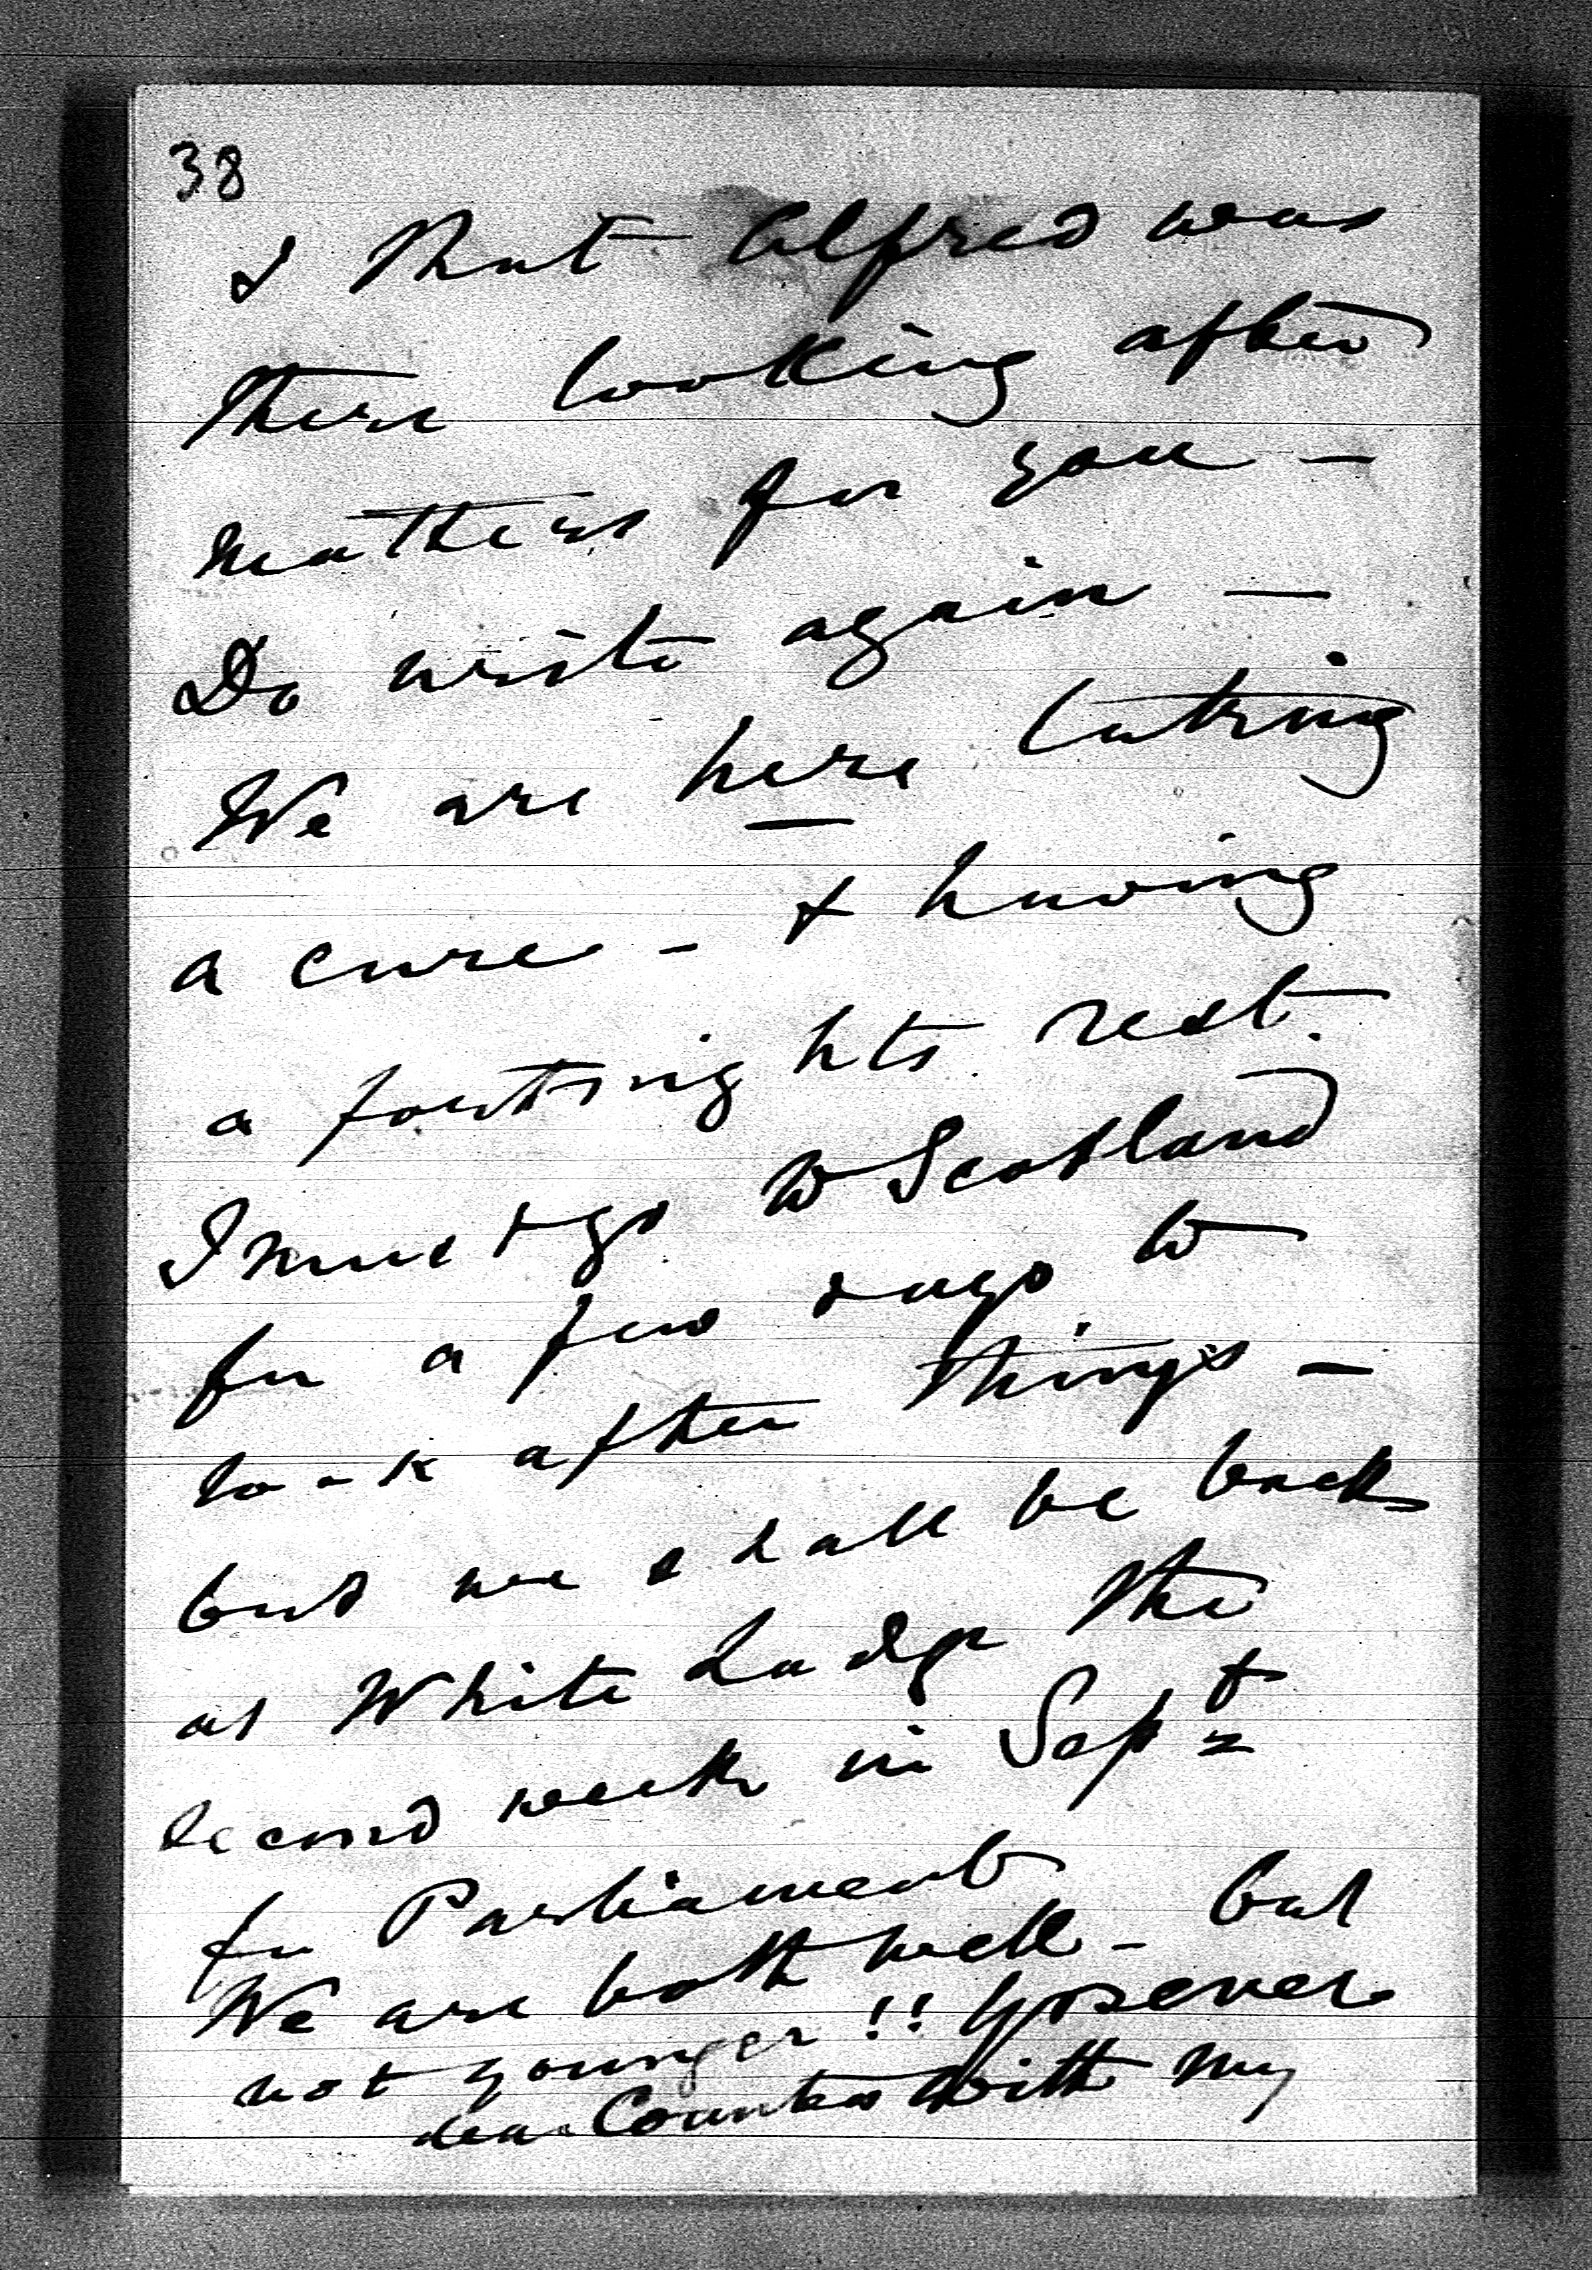 38
& that Alfred was
there looking after
matters for you —
Do write again —
We are here taking
a cure — & having
a fortnights rest.
I must go to Scotland
for a few days to
look after things —
but we shall be back
at White Lodge the
second week in Sept
for Parliament
We are both well — but
not younger !! Yrs ever
dear Countess with my